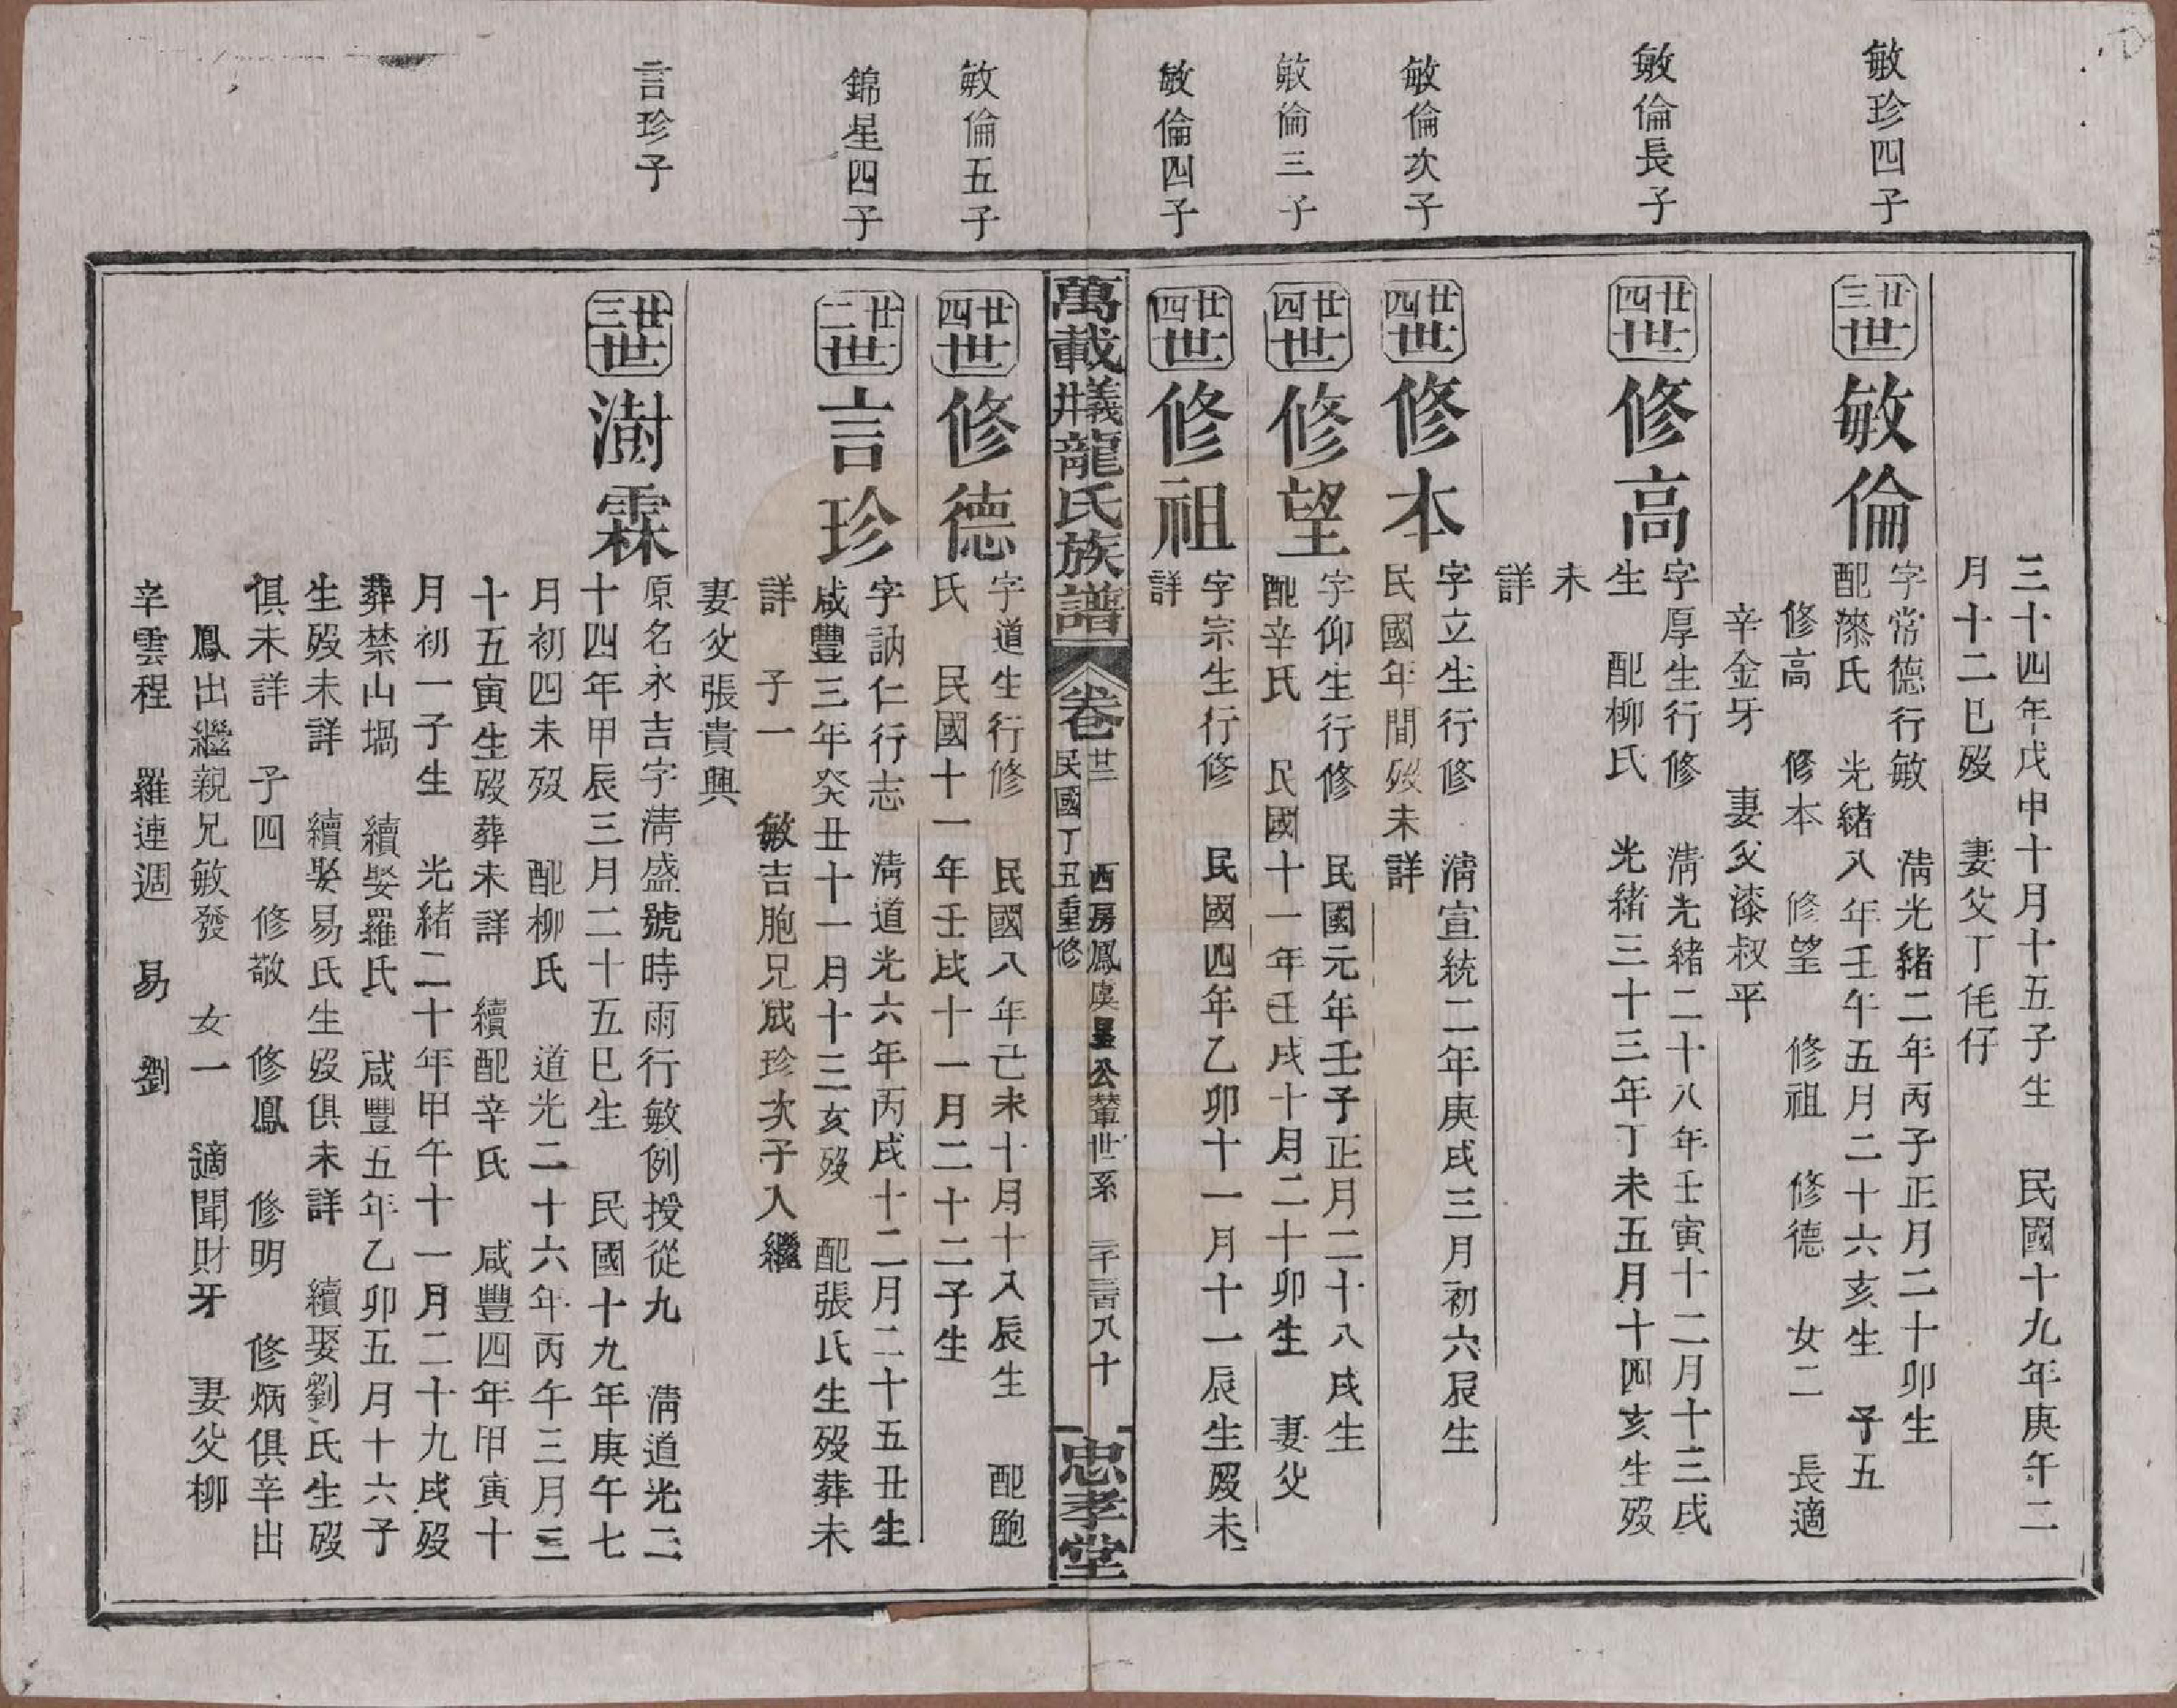 三十四年戊申十月十五子生 民國十九年庚午二
月十二巳歿 妻父丁仛仔
敏珍四子
廿三世 敏倫
字常德行敏 清光緒二年丙子正月二十卯生
配漆氏 光緒八年壬午五月二十六亥生 子五
修高 修本 修望 修祖 修德 女二 長適
辛金牙 妻父漆叔平
敏倫長子
廿四世 修高
字厚生行修 清光緒二十八年壬寅十二月十三戌
生 配柳氏 光緒三十三年丁未五月十四亥生歿
未
詳
敏倫次子
廿四世 修本
字立生行修 清宣統二年庚戌三月初六辰生
民國年間歿未詳
敏倫三子
廿四世 修望
字仰生行修 民國元年壬子正月二十八戌生
配辛氏 民國十一年壬戌十月二十卯生 妻父
敏倫四子
廿四世 修祖
字宗生行修 民國四年乙卯十一月十一辰生歿未
詳
萬載義井龍氏族譜 卷廿三 民國丁丑重修 西房鳳虞墨公輩世系 三千三百八十 忠孝堂
敏倫五子
廿四世 修德
字道生行修 民國八年己未十月十八辰生 配鮑
氏 民國十一年壬戌十一月二十二子生
錦星四子
廿二世 言珍
字訥仁行志 清道光六年丙戌十二月二十五丑生
咸豐三年癸丑十一月十三亥歿 配張氏生歿葬未
詳 子一 敏吉胞兄成珍次子入繼
妻父張貴興
言珍子
廿三世 澍霖
原名永吉字清盛號時雨行敏例授從九 清道光二
十四年甲辰三月二十五巳生 民國十九年庚午七
月初四未歿 配柳氏 道光二十六年丙午三月三
十五寅生歿葬未詳 續配辛氏 咸豐四年甲寅十
月初一子生 光緒二十年甲午十一月二十九戌歿
葬禁山塥 續娶羅氏 咸豐五年乙卯五月十六子
生歿未詳 續娶易氏生歿俱未詳 續娶劉氏生歿
俱未詳 子四 修敬 修鳳 修明 修炳俱辛出
鳳出繼親兄敏發 女一 適聞財牙 妻父柳
辛雲程 羅連週 易 劉